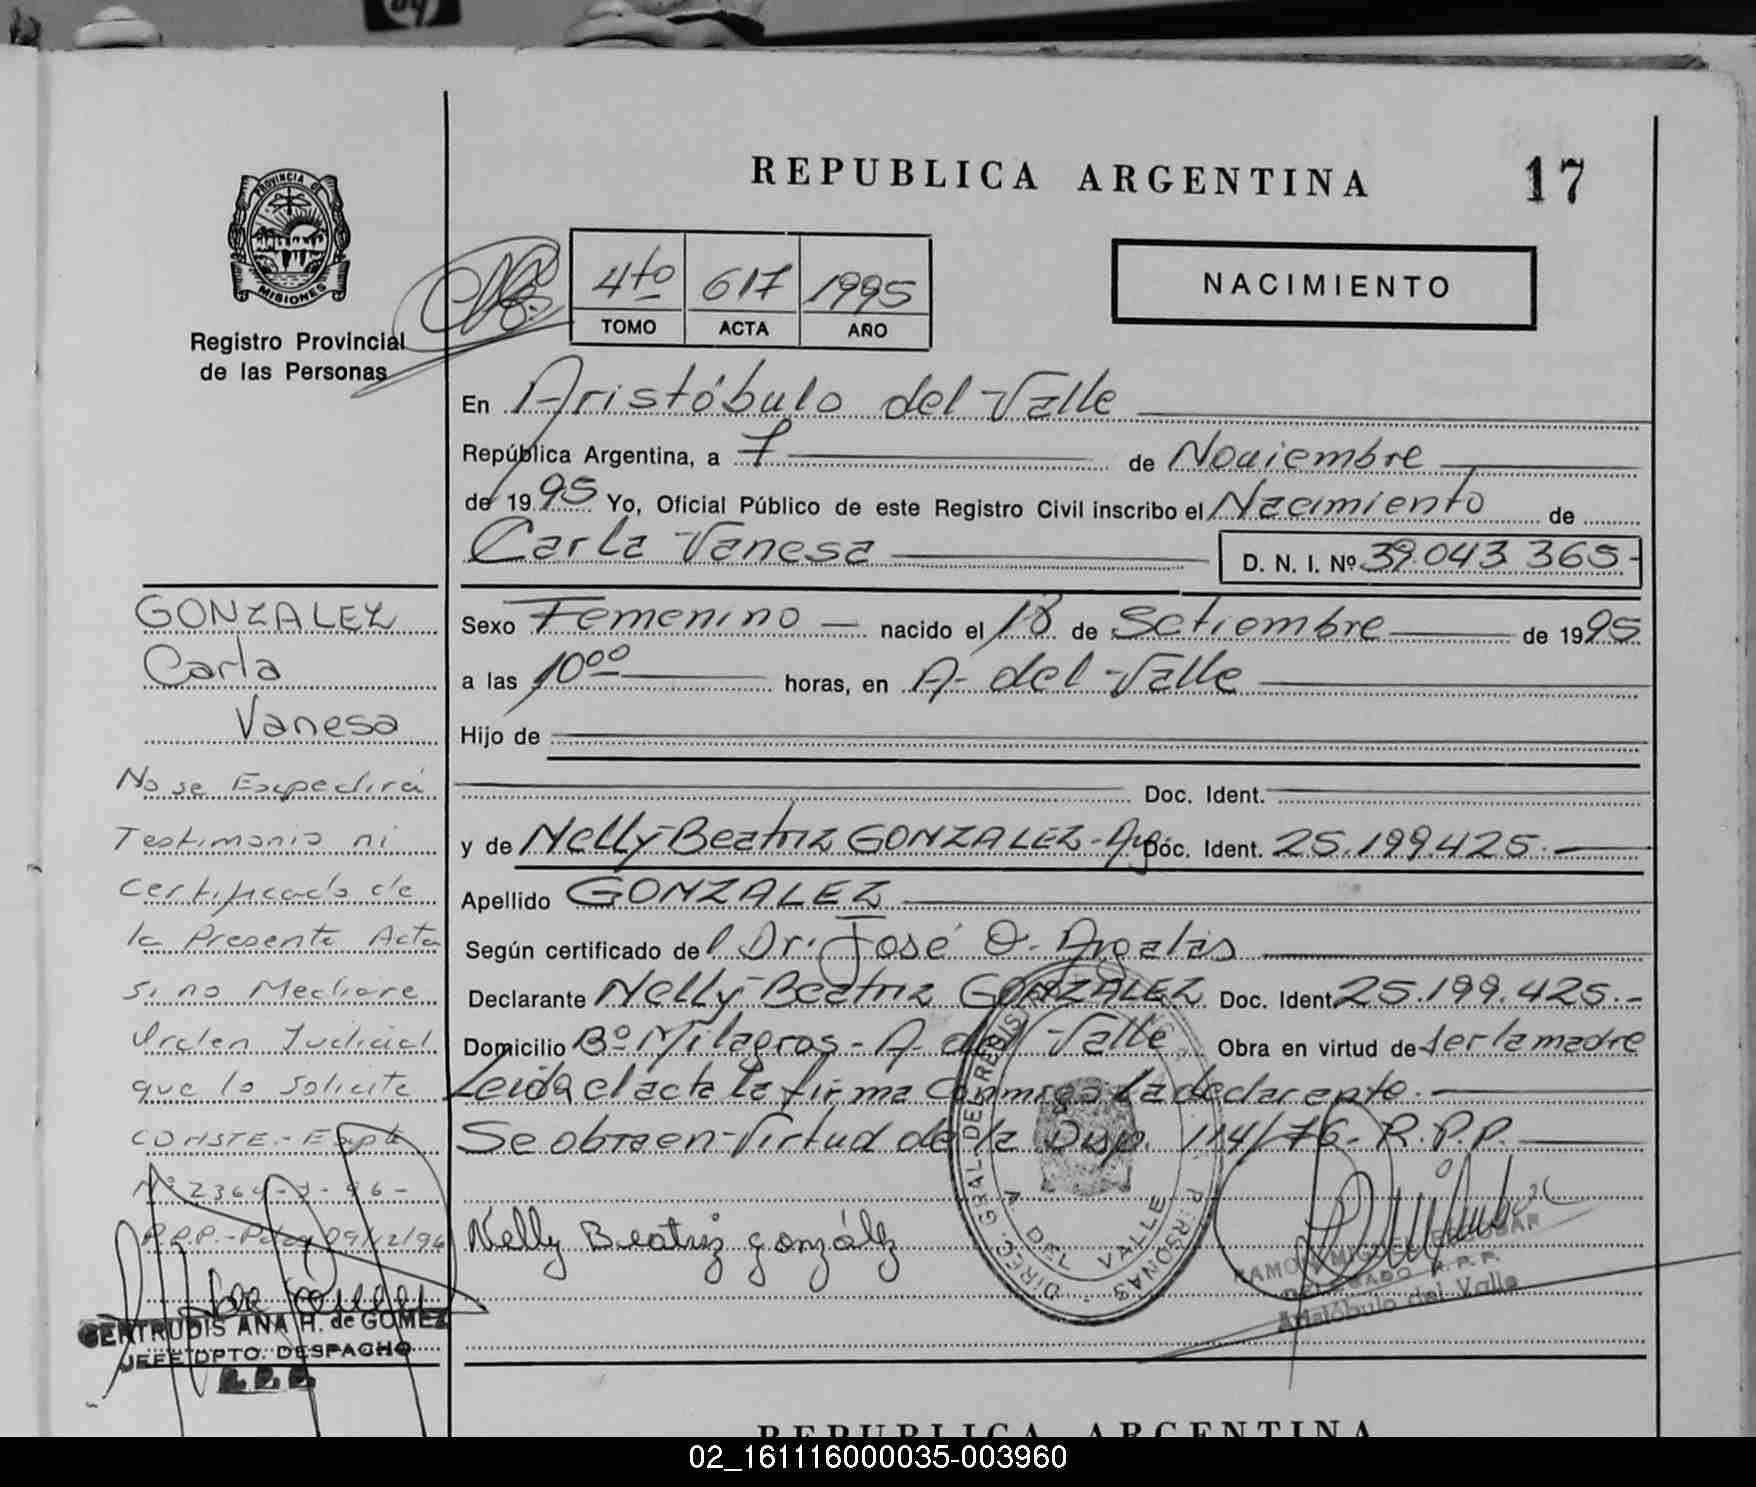 hp
REPUBLICA ARGENTINA
17
PROVINCIA DE
MISIONES
Registro Provincial
de las Personas
4to 617 1995
TOMO ACTA AÑO
NACIMIENTO
En Aristóbulo del Valle
República Argentina, a 7 de Noviembre
de 1995 Yo, Oficial Público de este Registro Civil inscribo el Nacimiento de
Carla Vanesa D. N. I. Nº 39.043.365-
GONZALEZ
Carla
Vanesa
Sexo Femenino nacido el 18 de Setiembre de 1995
a las 10⁰⁰ horas, en A. del Valle
Hijo de
Doc. Ident.
y de Nelly Beatriz GONZALEZ - Arg Doc. Ident. 25.199.425.-
Apellido GONZALEZ
Según certificado del Dr. José O.
Declarante Nelly Beatriz GONZALEZ Doc. Ident. 25.199.425.-
Domicilio Bº Milagros - A. del Valle Obra en virtud de ser la madre
Leida el acta la firma conmigo La declarante.-
Se obra en virtud de la Disp. 114/76- R.P.P.
No se Expedirá
Testimonio ni
Certificado de
la Presente Acta
si no Mediare
Orden Judicial
que lo solicite
CONSTE.- Expte
R.P.P.-
GERTRUDIS ANA H. de GOMEZ
JEFE DPTO. DESPACHO
R.P.P.
Nelly Beatriz gonzález
DIREC. GRAL DEL REGIS
PERSONAS
A DEL VALLE
RAMON MIGUEL ESCOBAR
DELEGADO R.P.P.
Aristóbulo del Valle
REPUBLICA ARGENTINA
02_161116000035-003960